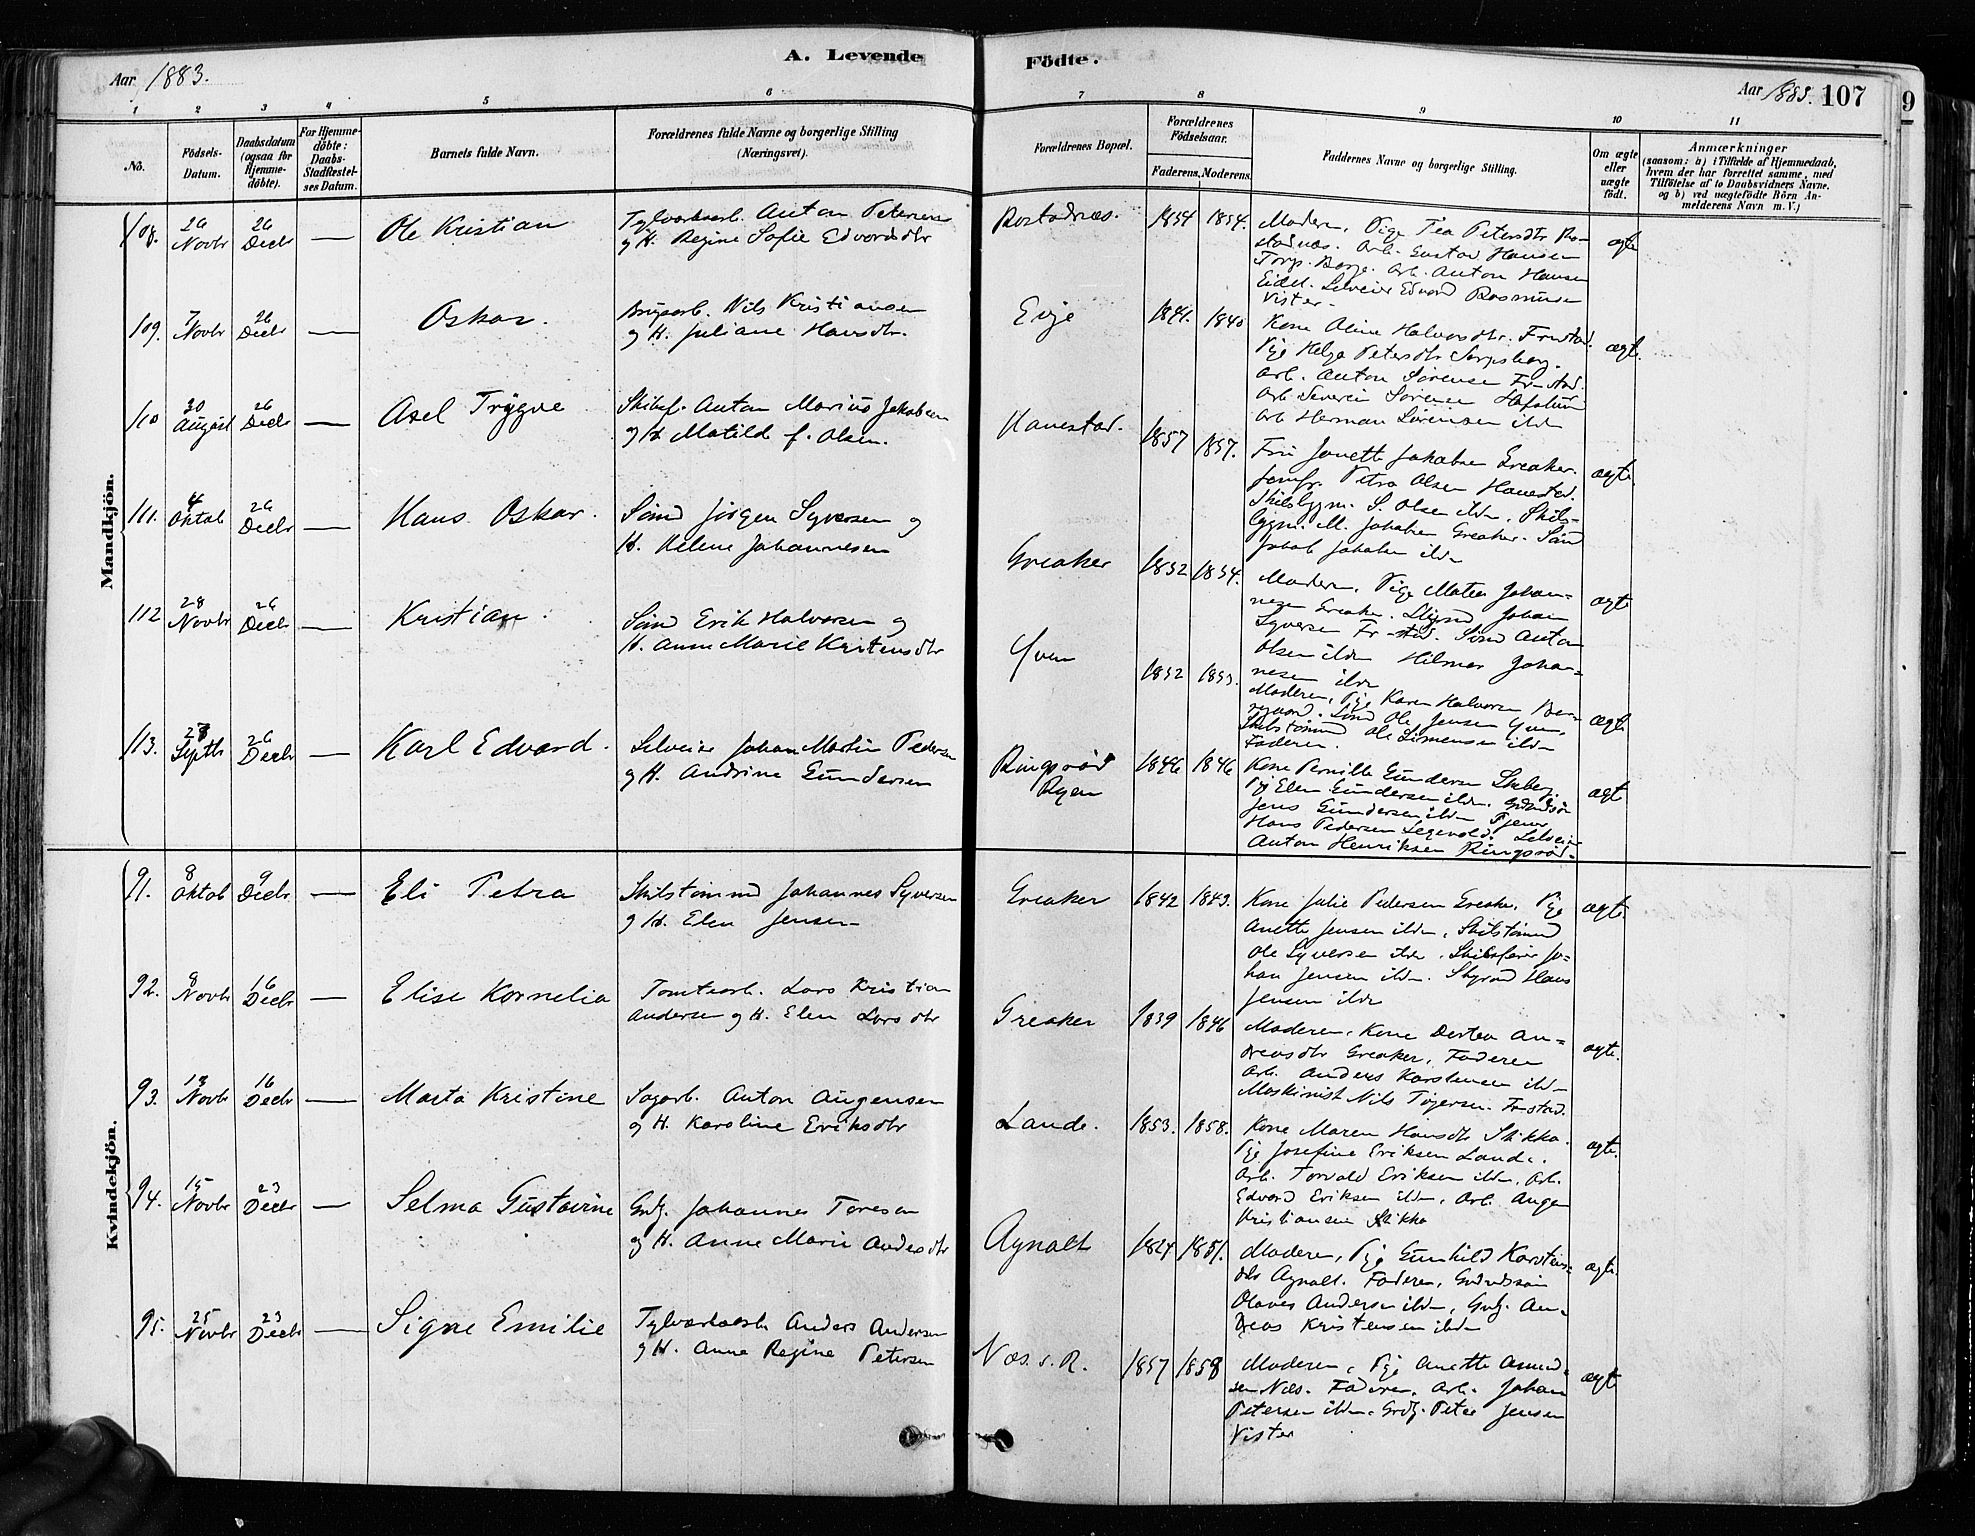 A. Levende Födte.
Aar 1883.
Aar 1883. 107
9
1 2 3 4 5 6 7 8 9 10 11
No.
Födsels-Datum.
Daabsdatum (ogsaa for Hjemmedöbte).
For Hjemmedöbte: Daabs-Stadfæstelses Datum.
Barnets fulde Navn.
Forældrenes fulde Navne og borgerlige Stilling
(Næringsvei).
Forældrenes Bopæl.
Forældrenes Födselsaar.
Faderens. Moderens.
Faddernes Navne og borgerlige Stilling.
Om ægte eller uægte født.
Anmærkninger
(saasom: a) i Tilfælde af Hjemmedaab,
hvem der har forrettet samme, med
Tilföielse af to Daabsvidners Navne,
og b) ved uægtefödte Börn An-
melderens Navn m. V.)
Mandkjön.
108. 26 Novbr 26 Decbr — Ole Kristian
Anton Petersen
og H. Regine Sofie Edvardsdtr
1854 1854.
Moderen, Pige Tea Petersdtr
Arb. Gustav Hansen
Torp. Borge. Arb. Anton Hansen
Eidet. Selveier Edvard Rasmusen
Vister. ægte
109. 7 Novbr 26 Decbr — Oskar.
Nils Kristiansen
og H. Juliane Hansdtr.
Evje 1840
Kone Aline Halvorsdtr. Frstad.
Pige Helga Petersdtr Sarpsborg.
Arb. Anton Sørensen Fr-stad.
Arb Severin Sørensen Hafslund
Arb Herman Sørensen ibdm ægte
110 30 August 26 Decbr — Axel Trygve
Skibsf. Anton Marius Jakobsen
og H. Matilde f. Olsen.
Hanestad. 1857 1857.
Fru Janette Jakobsen Greaker.
Jomfr. Petra Olsen Hanestad.
Skibsbygm. S. Olsen ibdm, Skibs-
bygm. M. Jakobsen Greaker. Sømd
Jakob Jakobsen ibdm ægte.
111. 4 Oktob 26 Decbr — Hans Oskar.
Sømd Jørgen Syversen og
H. Helene Johannesen
Greaker 1852 1854.
Moderen, Pige Matea Johan-
nesen Greaker. Johan
Syversen Fr-stad. Sømd Anton
Olsen ibdm Hilmar Johan-
nesen ibdm ægte
112 28 Novbr 26 Decbr — Kristian.
Sømd Erik Halvorsen og
H. Anne Marie Kristensdtr
Yven 1852
Moderen, Pige Karen Halvorsen
Sømd Ole Jensen Yven,
Skibstømmd Ole Simensen ibdm
Faderen. ægte
113. 28 Septbr 26 Decbr — Karl Edvard.
Selveier Johan Martin Pedersen
og H. Andrine Gundersen
Ringsrød
Ryen 1846 1846
Kone Pernille Gundersen Skeberg.
Pige Elen Gundersen ibdm. Grdmdsøn
Jens Gundersen ibdm Tjener
Hans Pedersen Selveier
Anton Henriksen Ringsrød. ægte
Kvindekjön.
91. 8 Oktob 9 Decbr — Eli Petra
Skibstømmd Johannes Syversen
og H. Elen Jensen
Greaker 1842 1843.
Kone Julie Pedersen Greaker, Pige
Anette Jensen ibdm, Skibstømmd
Ole Syversen ibdm. Skibsfører Jo-
han Jensen ibdm. Styrmd Hans
Jensen ibdm ægte.
92. 8 Novbr 16 Decbr — Elise Kornelia
Tomtearb. Lars Kristian
Andersen og H. Elen Larsdtr
Greaker 1839 1846
Moderen, Kone Dortea An-
dreasdtr Greaker, Faderen
Arb. Anders Karstensen ibdm
Maskinist Nils Tøgersen. Fr-stad. ægte.
93. 13 Novbr 16 Decbr — Marta Kristine
Sagarb. Anton Augensen
og H. Karoline Eriksdtr
Lande. 1853. 1858.
Kone Maren Hansdtr Stikka.
Pige Josefine Eriksen Lande.
Arb. Torvald Eriksen ibdm, Arb.
Edvard Eriksen ibdm, Arb. Augen
Kristiansen Stikka ægte.
94. 15 Novbr 23 Decbr — Selma Gustavine
Grdj. Johannes Toresen
og H. Anne Marie Andersdtr
Agnalt 1824 1851.
Moderen, Pige Gunhild Karstens-
dtr Agnalt. Faderen, Grdmdssøn
Olaves Andersen ibdm, Grdj. An-
dreas Kristensen ibdm ægte.
95. 25 Novbr 23 Decbr — Signe Emilie
Anders Andersen
og H. Anne Regine Petersen
Næs. s. R. 1857 1858
Moderen, Pige Anette Amund-
sen Næs. Faderen. Arb. Johan
Petersen ibdm. Grdj. Peter Jensen
Vister ægte